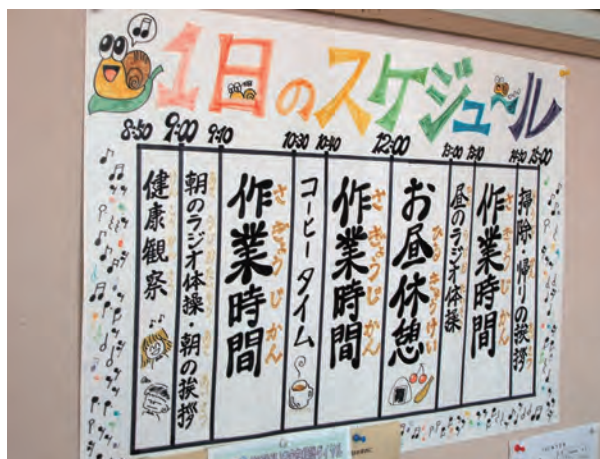 1日のスケジュール
8:50 9:00 9:10 10:30 10:40 12:00 13:00 13:10 14:50 15:00
健康観察
朝のラジオ体操・朝の挨拶
作業時間
さぎょうじかん
コーヒータイム
作業時間
さぎょうじかん
お昼休憩
ひるきゅうけい
昼のラジオ体操
作業時間
さぎょうじかん
掃除・帰りの挨拶